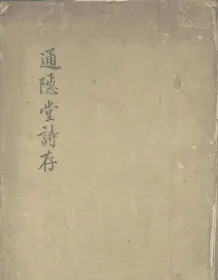 通隱堂詩存